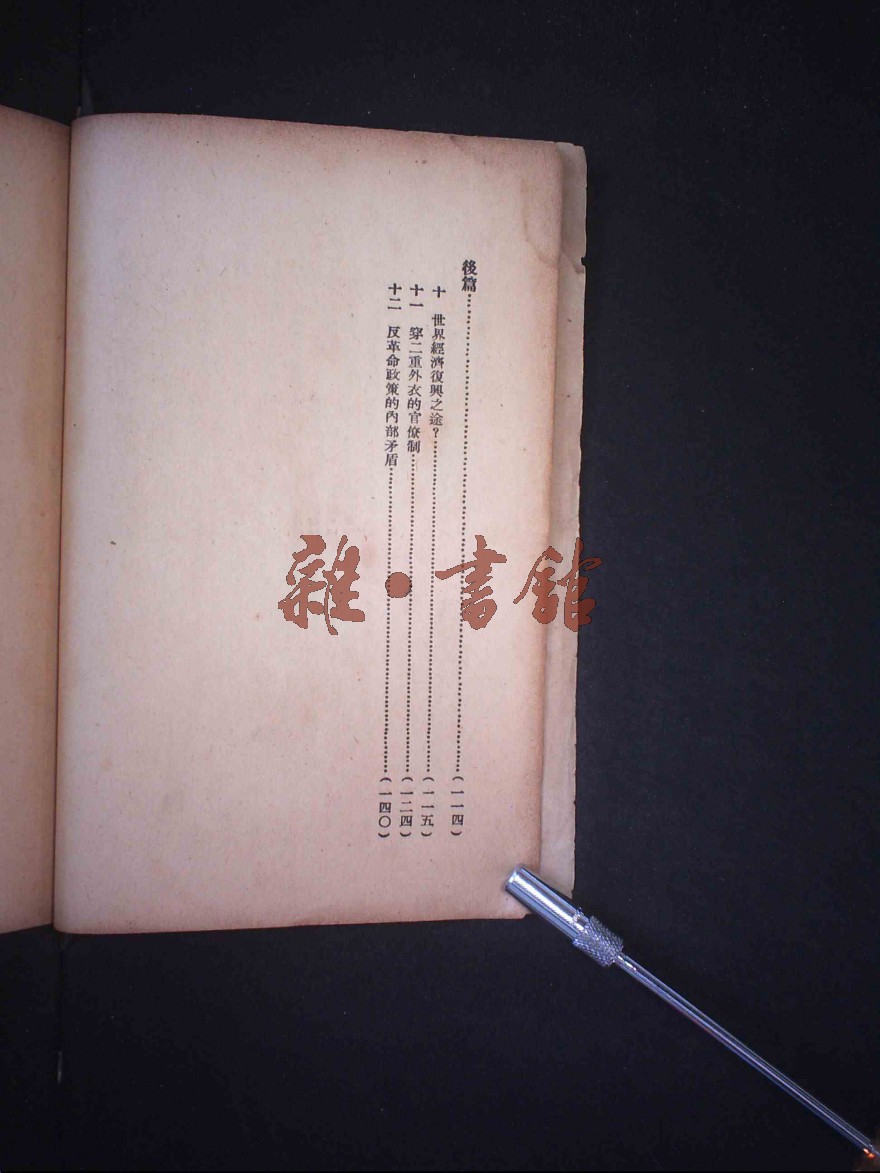 後篇……………………(一一四)
十　世界經濟復興之途?……………………(一一五)
十一　穿二重外衣的官僚制……………………(一二四)
十二　反革命政策的內部矛盾……………………(一四〇)
雜·書館